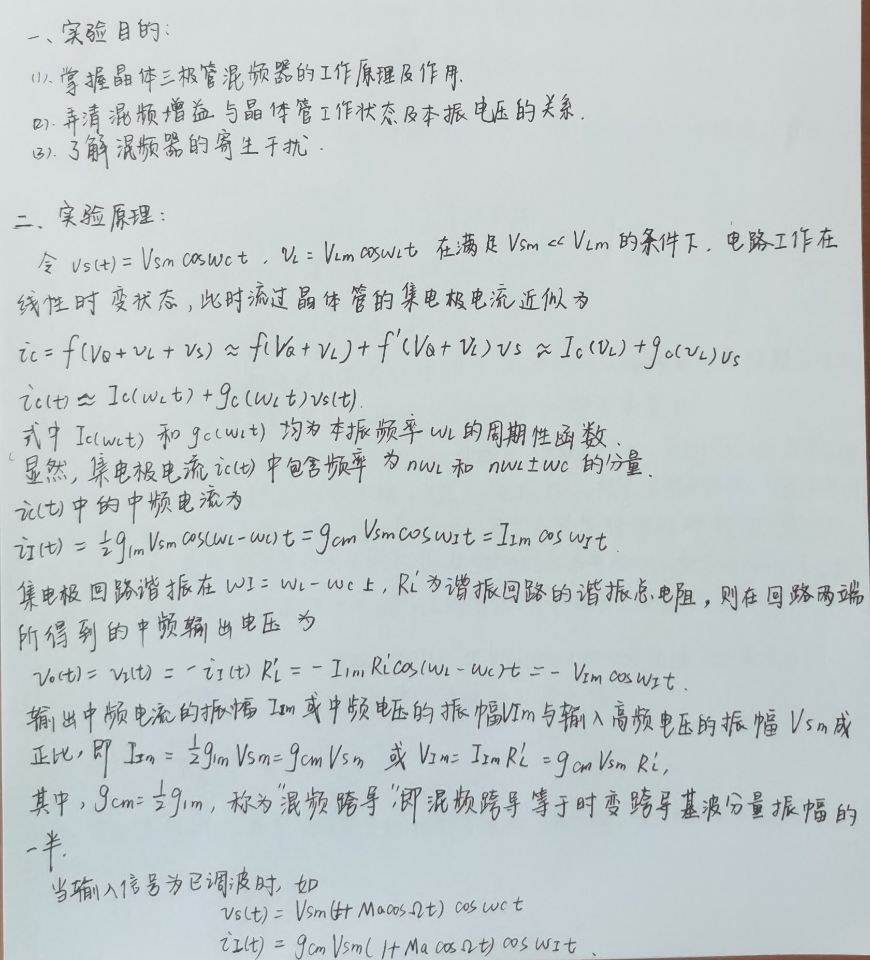 一、实验目的：
(1). 掌握晶体三极管混频器的工作原理及作用.
(2). 弄清混频增益与晶体管工作状态及本振电压的关系.
(3). 了解混频器的寄生干扰.
二、实验原理：
令 vs(t) = Vsm coswct , vL = VLm coswLt 在满足 Vsm << VLm 的条件下. 电路工作在
线性时变状态, 此时流过晶体管的集电极电流近似为
ic = f(VQ + vL + vs) ≈ f(VQ + vL) + f'(VQ + vL) vs ≈ Ic(vL) + gc(vL)vs
ic(t) ≈ Ic(wLt) + gc(wLt)vs(t).
式中 Ic(wLt) 和 gc(wLt) 均为本振频率 wL 的周期性函数.
显然, 集电极电流 ic(t) 中包含频率为 nwL 和 nwL±wc 的分量.
ic(t) 中的中频电流为
iI(t) = ½g1m Vsm cos(wL-wc)t = gcm Vsm cos wIt = IIm cos wIt.
集电极回路谐振在 wI = wL - wc 上, RL' 为谐振回路的谐振总电阻, 则在回路两端
所得到的中频输出电压为
vo(t) = vI(t) = -iI(t) RL' = - IIm RL' cos(wL - wc)t = - VIm cos wIt.
输出中频电流的振幅 IIm 或中频电压的振幅VIm 与输入高频电压的振幅 Vsm 成
正比, 即 IIm = ½g1m Vsm = gcm Vsm 或 VIm = IIm RL' = gcm Vsm RL',
其中, gcm = ½g1m, 称为“混频跨导”, 即混频跨导等于时变跨导基波分量振幅的
一半.
当输入信号为已调波时, 如
vs(t) = Vsm(1+ Ma cosΩt) cos wct
iI(t) = gcm Vsm( 1+ Ma cosΩt) cos wIt.